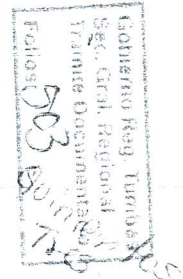 Gobierno Reg. Tumbes
Sec. Gral. Regional
Trámite Documentario
Folios: 503